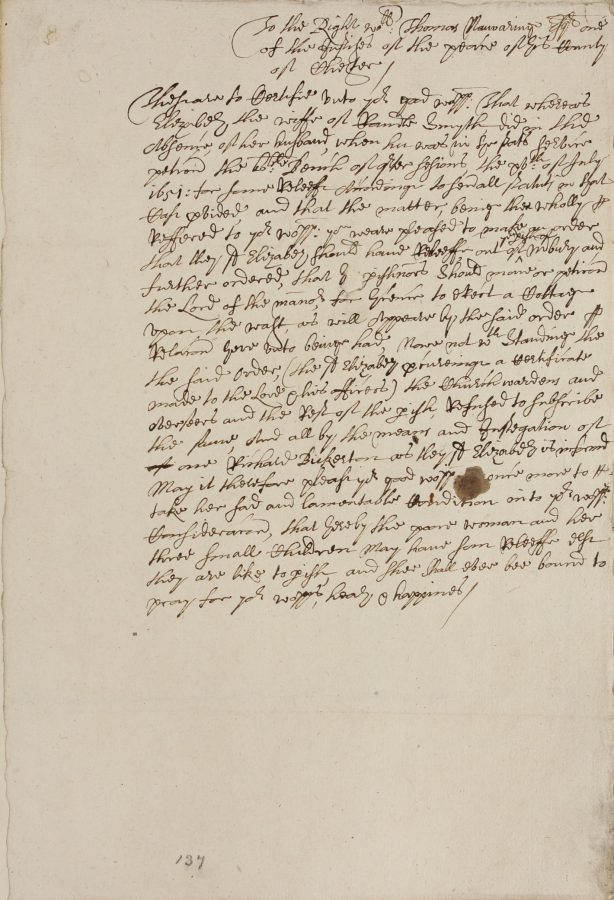 To the Right wo:ll Thomas Manwaring Esq one
of the Justices of the peace of ys County
of Chester /
These are to Certifie unto yor good wopp: That whereas
Elizabeth the wiffe of Randle Smyth did in the
Absence of her husband, when hee was in the states service
petion the Bench of qter sessions the July
1651: for some Releefe According to severall statuts in that
Case pvided and that the matter, beinge then wholly
Reffered to yor wopp: you weare pleased to make an order
that they sd Elizabeth should have Releeffe out of ye pish of and
further ordered, that ye pishnors should move or petion
the Lord of the manor for lycence to erect a Cottage
upon the wast as will Appeare by the said order
Relacon here unto beinge had, Nowe not wth standinge the
the said order, (the sd Elizabeth pcureinge a Certificate
made to the Lord & his officers) the Church wardens and
overseers and the Rest of the pish Refused to subscribe
the same, And all by the meanes and Instegation of
one Richard Bickerton as they sd Elizabeth is informd
May it therefore please yor good wopp once more to
take her sad and lamentable Condition into yor wopps
Consideracon, that hereby the poore woman and her
three small Children May have som Releeffe else
they are like to pish and shee shall ever bee bound to
pray for yor wopps, health & happines /
137